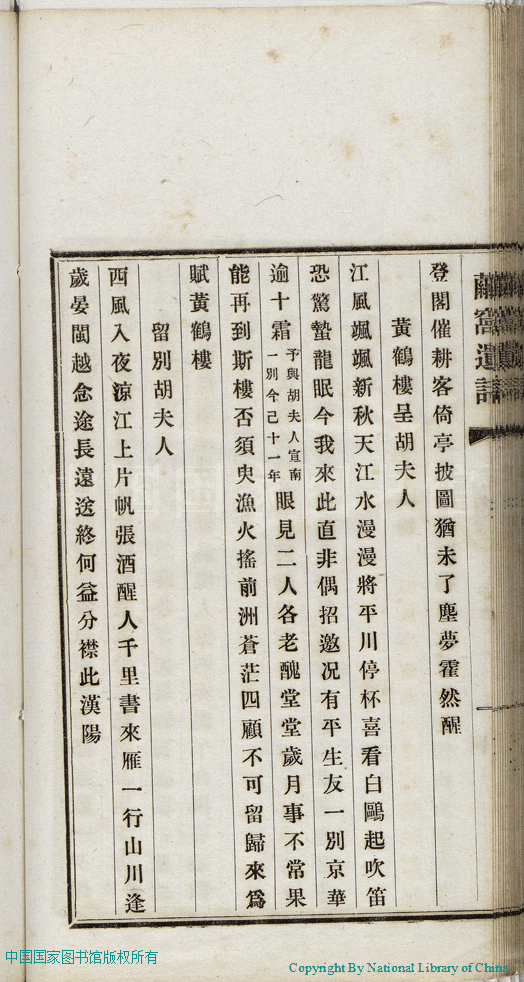 繭窩遺詩
登閣催耕客倚亭披圖猶未了塵夢霍然醒
黃鶴樓呈胡夫人
江風颯颯新秋天江水漫漫將平川停杯喜看白鷗起吹笛
恐驚蟄龍眠今我來此直非偶招邀况有平生友一別京華
逾十霜予與胡夫人宣南一別今已十一年眼見二人各老醜堂堂歲月事不常果
能再到斯樓否須臾漁火搖前洲蒼茫四顧不可留歸來爲
賦黃鶴樓
留別胡夫人
西風入夜涼江上片帆張酒醒人千里書來雁一行山川逢
歲晏閩越念途長遠送終何益分襟此漢陽
中国国家图书馆版权所有
Copyright By National Library of China